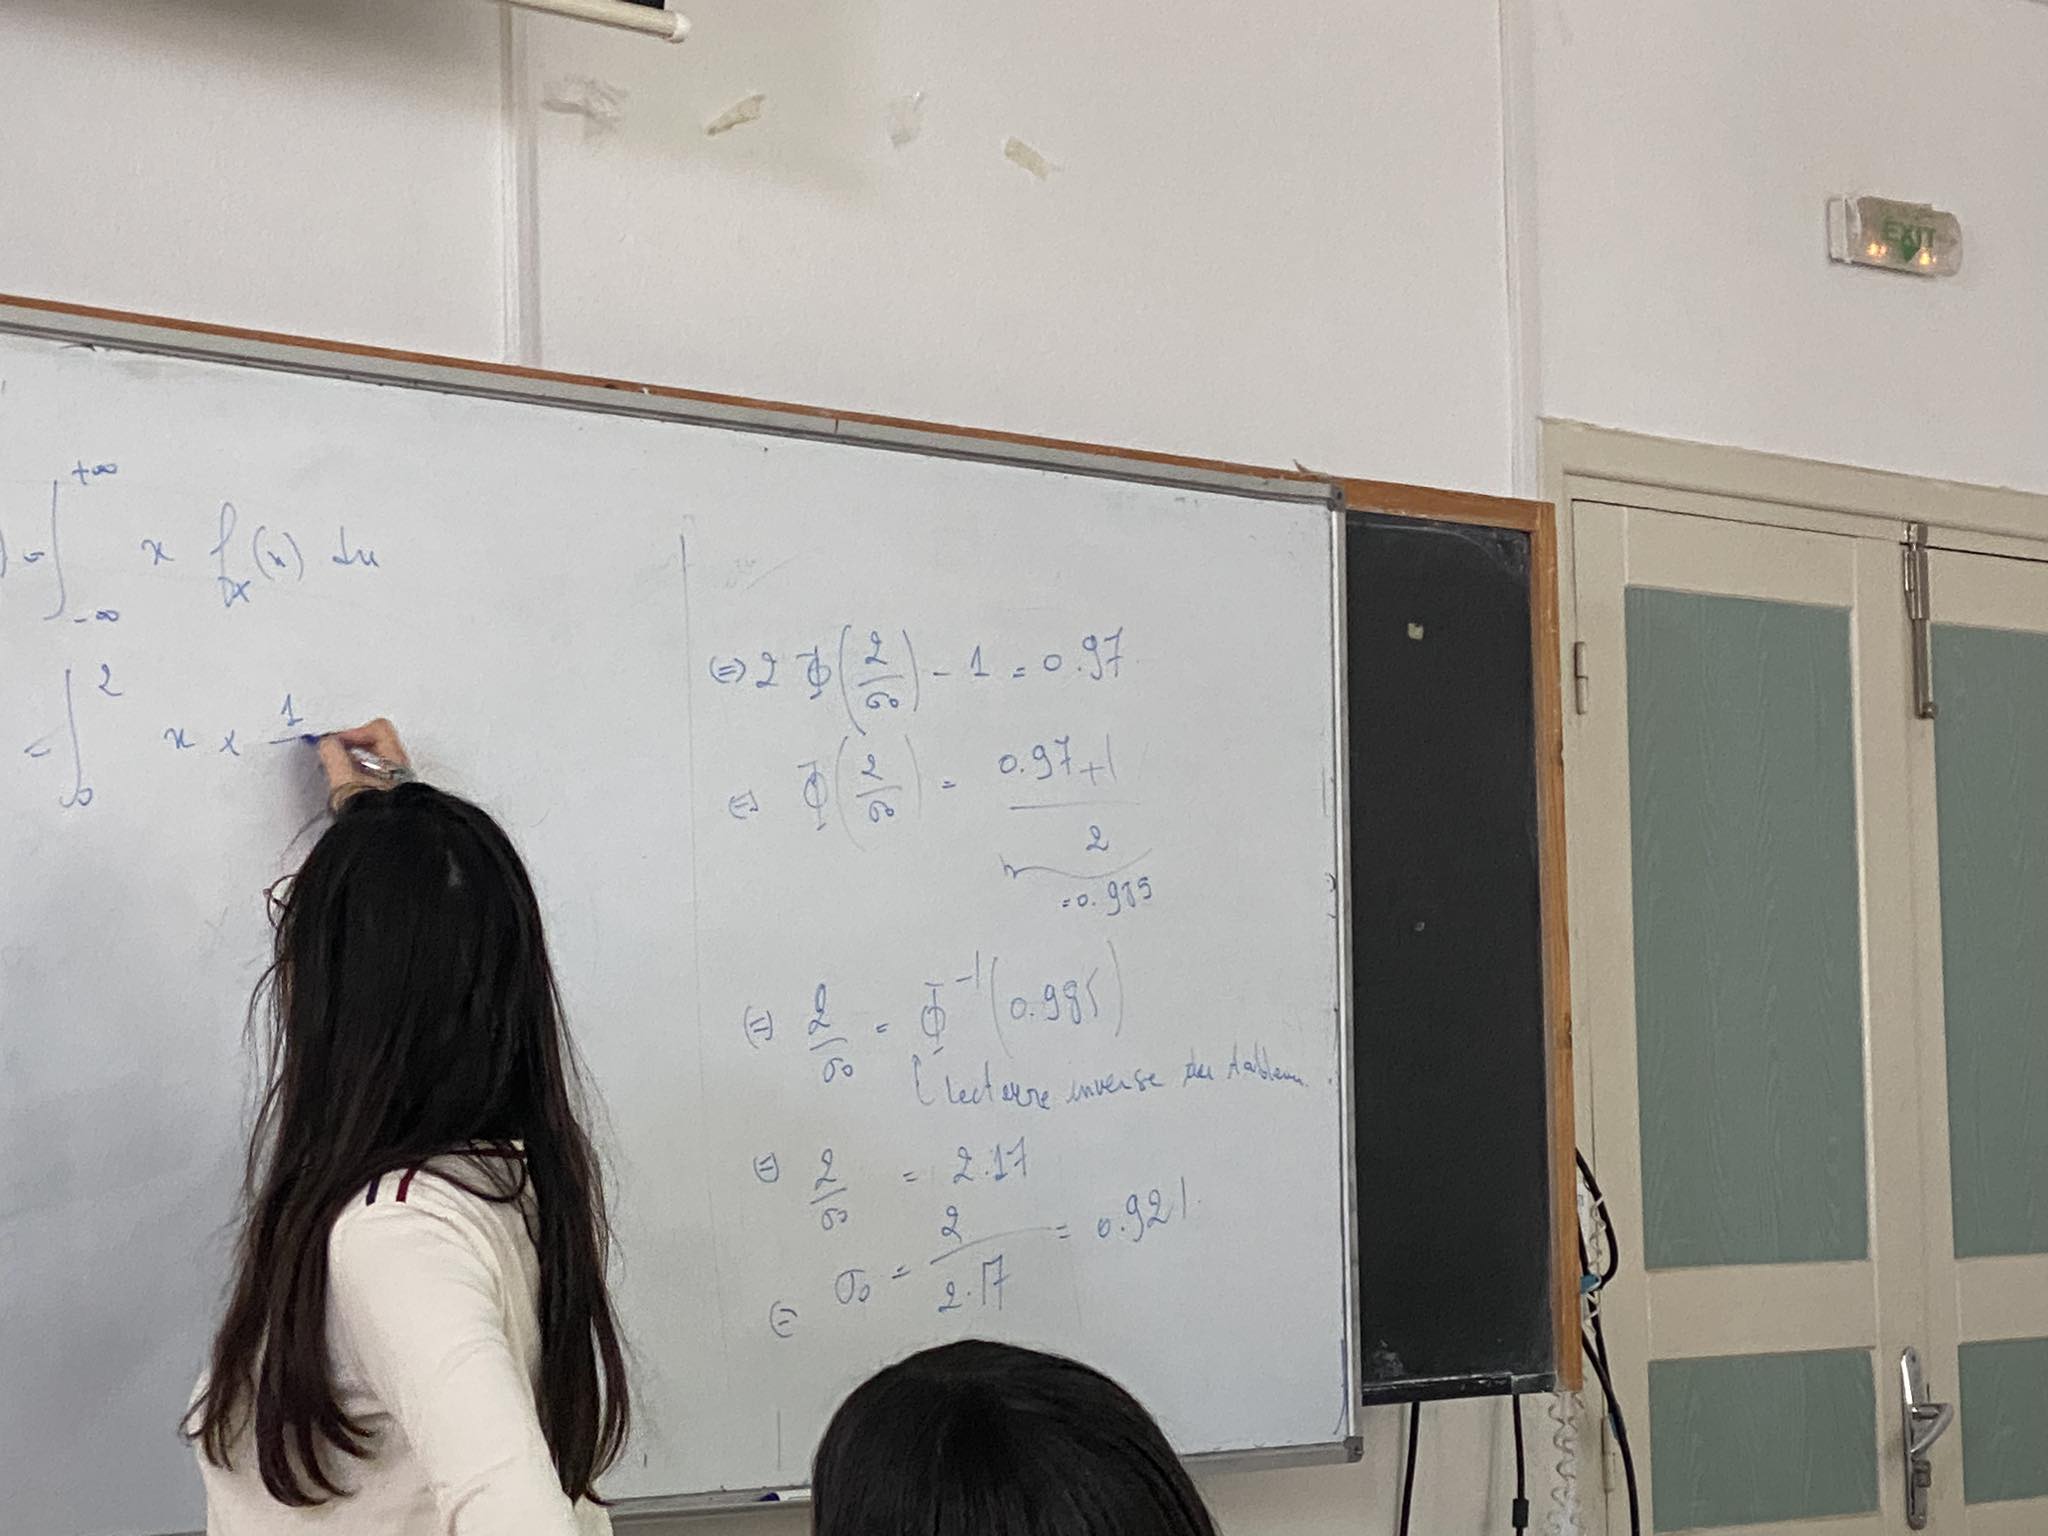 EXIT
) = ∫ +∞ -∞ x f_X(x) dx
= ∫ 2 0 x × 1
(=) 2 Φ(2/σ₀) - 1 = 0.97
(=) Φ(2/σ₀) = 0.97+1 / 2
= 0.985
(=) 2/σ₀ = Φ⁻¹(0.985)
lecture inverse du tableau.
(=) 2/σ₀ = 2.17
(=) σ₀ = 2/2.17 = 0.921.